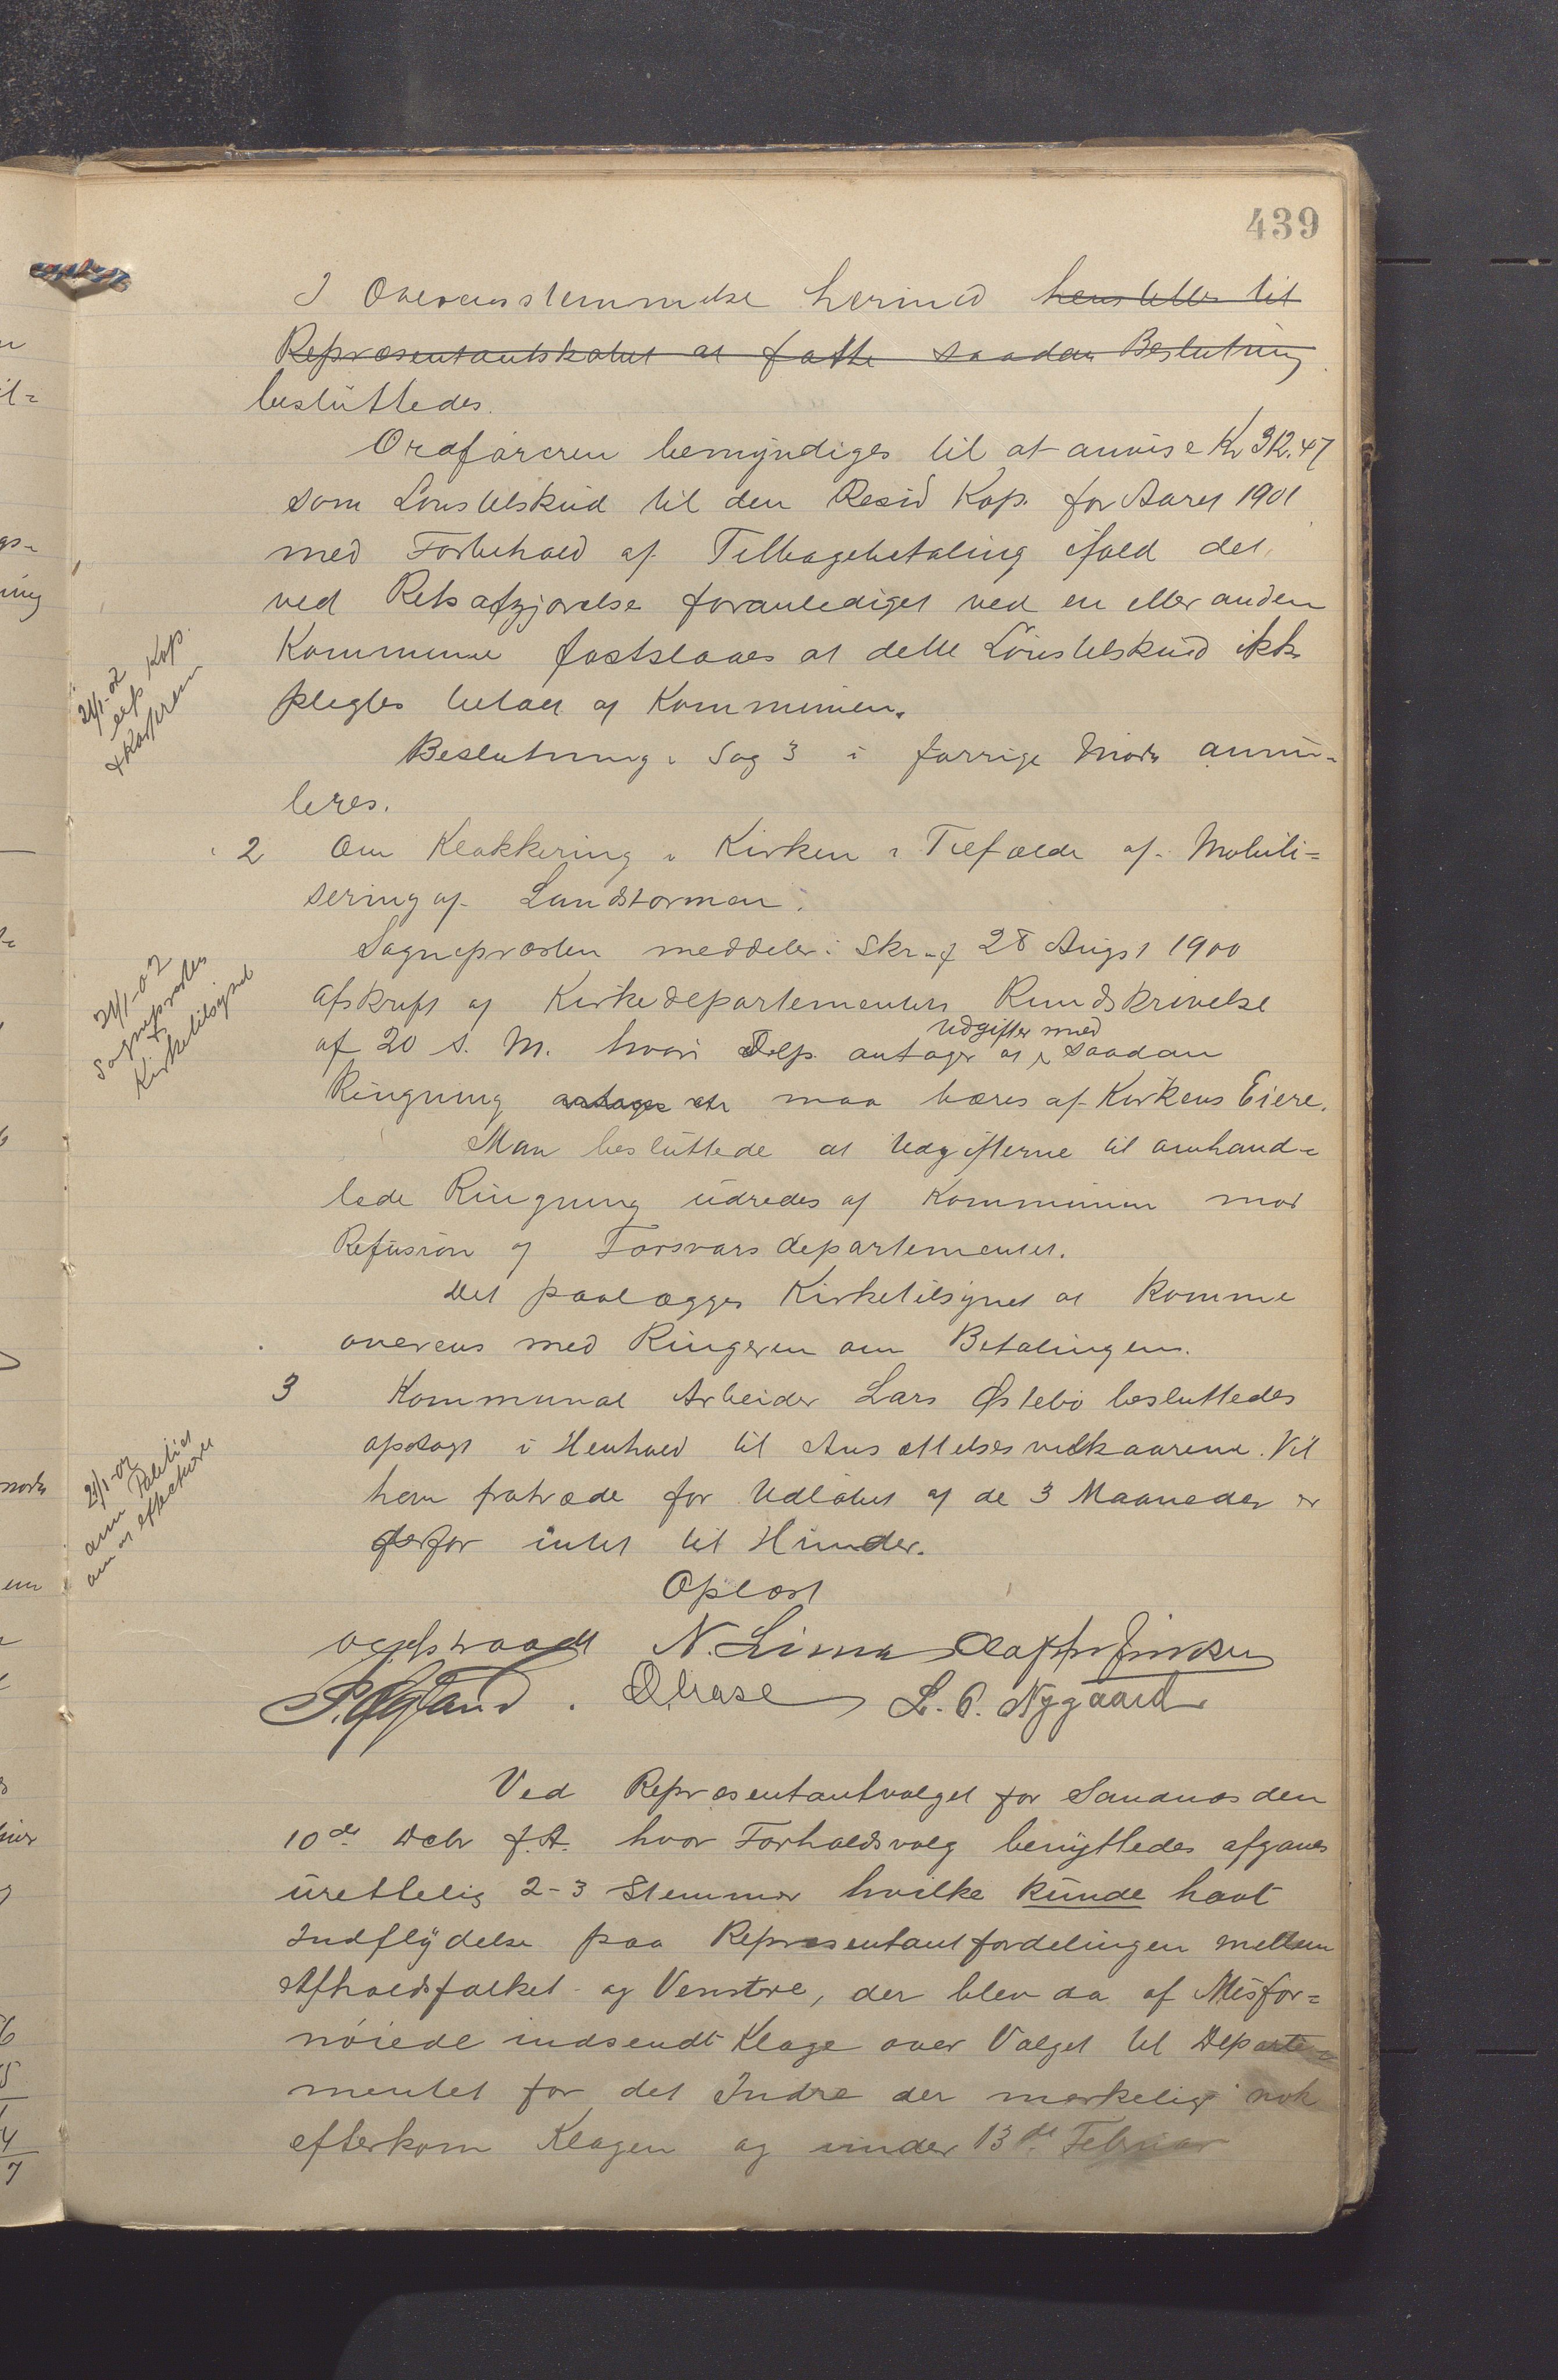 439
I Overensstemmelse hermed henstilles til
Repræsentantskabet at fatte saadan Beslutning
besluttedes.
Ordføreren bemyndiges til at anvise Kr 312.47
som Lønstilskud til den Resid Kap. for Aaret 1901
med Forbehold af Tilbagebetaling ifald det
ved Retsafgjørelse foranlediget ved en eller anden
Kommune fastslaaes at dette Lønstilskud ikke
pligtes betalt af Kommunen.
Beslutning i Sag 3 i forrige Møde annu-
leres.
21/1-02
exp Kap.
& Kasseren
2 Om Klokkering i Kirken i Tilfælde af Mobili=
sering af Landstormen.
Sognepresten meddeler i Skr. af 28 Augst 1900
Afskrift af Kirkedepartementets Rundskrivelse
af 20 s. M. hvori Dep. antager at Udgifter med saadan
Ringning antages at maa bæres af Kirkens Eiere.
21/1-02
Sognepresten
&
Kirketilsynet
Man besluttede at Udgifterne til omhand=
lede Ringning udredes af Kommunen mod
Refusion af Forsvarsdepartementet.
Det paalægges Kirketilsynet at komme
overens med Ringeren om Betalingen.
3 Kommunal Arbeider Lars Østebø besluttedes
opsagt i Henhold til Ansættelsesvilkaarene. Vil
han fratræde før Udløbet af de 3 Maaneder er
derfor intet til Hinder.
21/1-02
anm Politiet
om at effektuere
Oplæst
Aagestraadt N. Lima
P. Øgland. O Aase L. P. Nygaard
Ved Repræsentantvalget for Sandnæs den
10de Decbr f. A. hvor Forholdsvalg benyttedes afgaves
urettelig 2-3 Stemmer hvilke kunde havt
Indflydelse paa Repræsentantfordelingen mellem
Afholdsfolket og Venstre, der blev da af Misfor=
nøiede indsendt Klage over Valget til Departe=
mentet for det Indre der mærkelig nok
efterkom Klagen og under 13de Februar